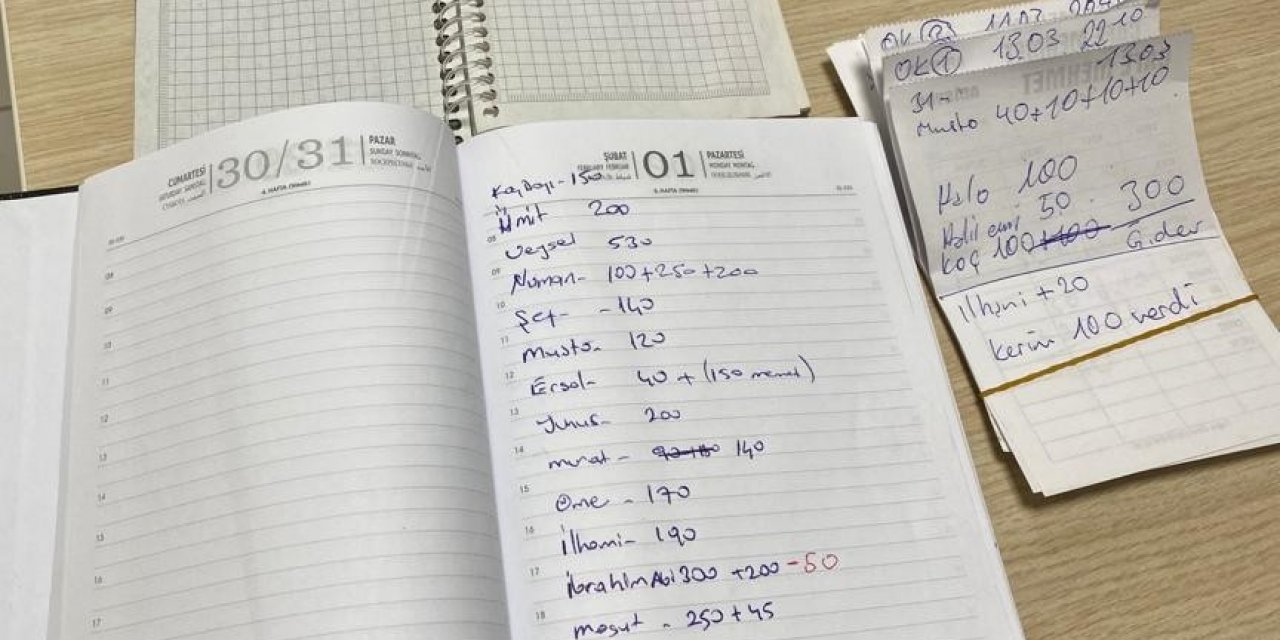 CUMARTESİ
30/31
PAZAR
4. HAFTA
08
09
10
11
12
13
14
15
16
17
ŞUBAT
FEBRUARY
01
PAZARTESİ
5. HAFTA
Kaç Dayı - 150
Ümit 200
Veysel 530
Numan - 100+250+200
Şef - - 140
Musto - 120
Ersol - 40 + (150 memet)
Yunus - 200
murat - 140
Ome - 170
İlhami - 190
İbrahim Abi 300 +200 -50
mesut - 250+45
OK (2) 11.03
OK (1) 13.03 22 10
13.03
31 -
Musto 40+10+10+10
Halo 100
Halil emi 50 300
Koç 100+100 Gider
İlhami +20
Kerim 100 verdi